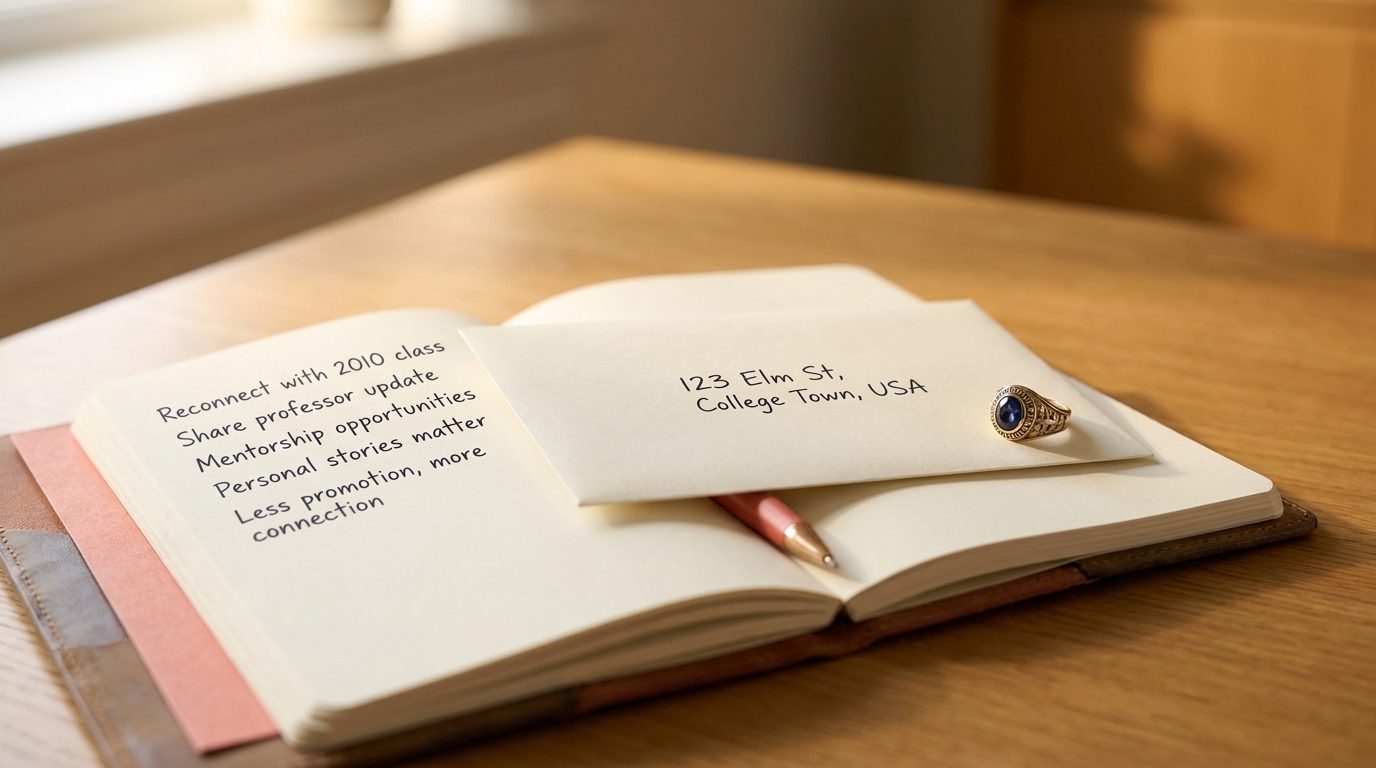 Reconnect with 2010 class
Share professor update
Mentorship opportunities
Personal stories matter
Less promotion, more
connection
123 Elm St,
College Town, USA